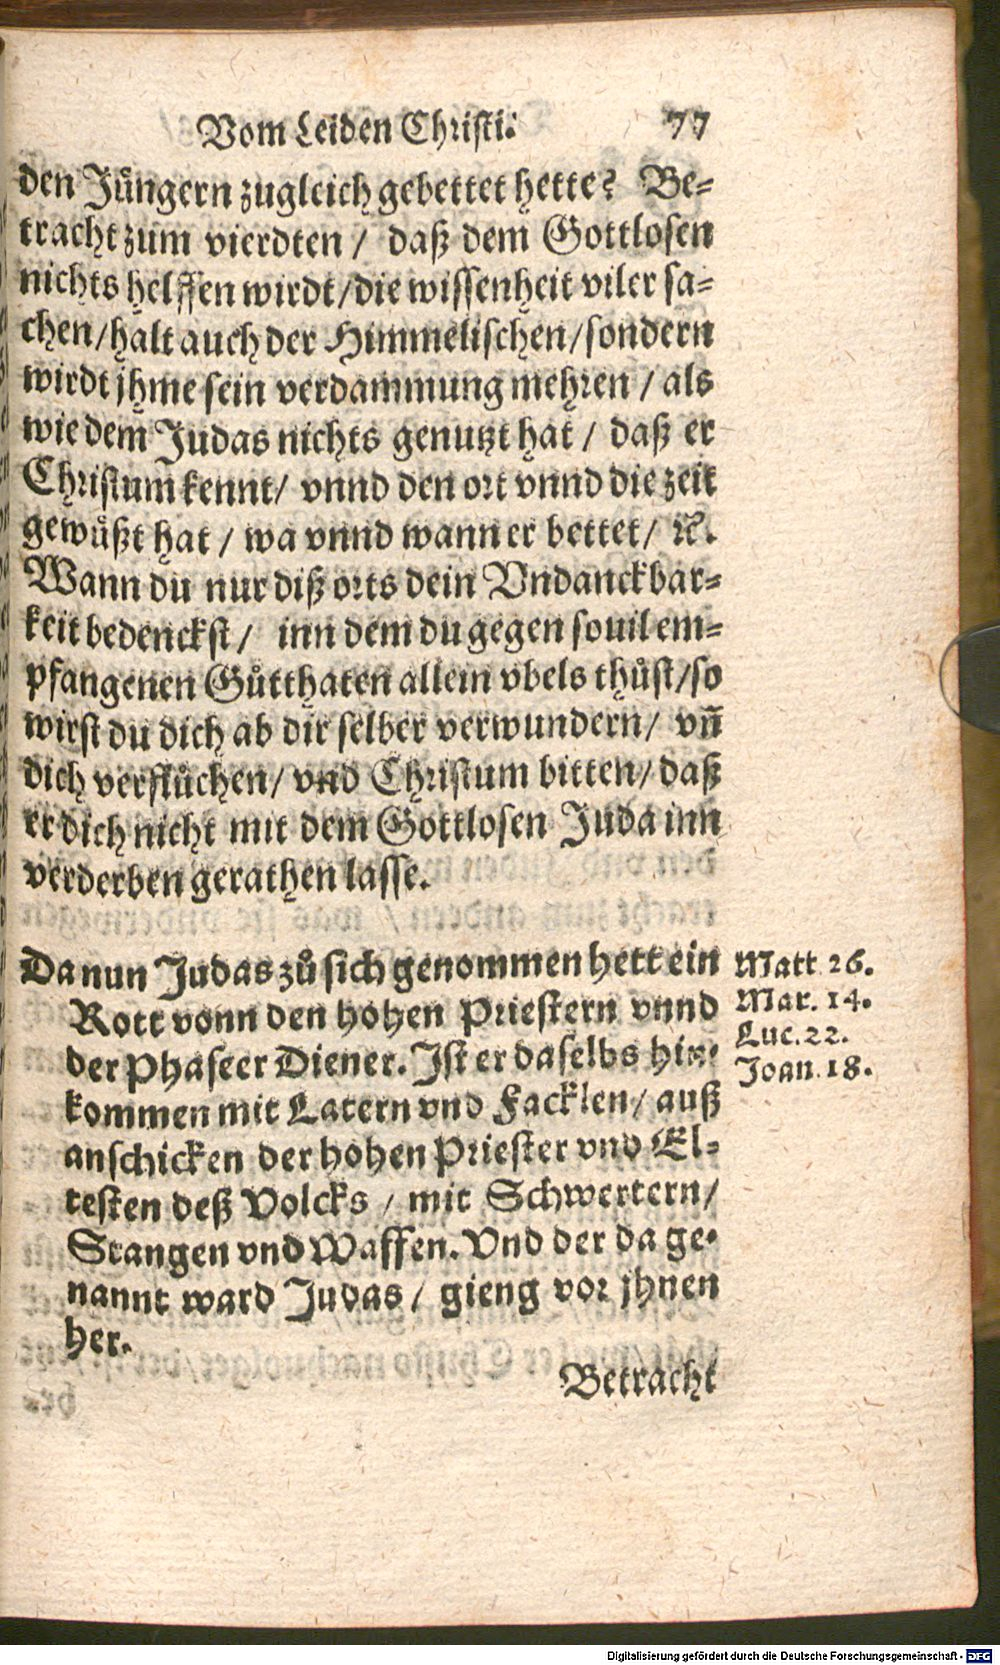 Vom Leiden Christi. 77
den Jüngern zugleich gebettet hette? Be-
tracht zum vierdten / daß dem Gottlosen
nichts helffen wirdt / die wissenheit viler sa-
chen / halt auch der Himmelischen / sondern
wirdt jhme sein verdammung mehren / als
wie dem Judas nichts genutzt hat / daß er
Christum kennt / vnnd den ort vnnd die zeit
gewüßt hat / wa vnnd wann er bettet / ꝛc.
Wann du nur diß orts dein Vndanckbar-
keit bedenckst / inn dem du gegen souil em-
pfangenen Gůtthaten allein vbels thůst / so
wirst du dich ab dir selber verwundern / vñ
dich verflůchen / vnd Christum bitten / daß
er dich nicht mit dem Gottlosen Juda inn
verderben gerathen lasse.
Da nun Judas zů sich genommen hett ein
Rott vonn den hohen Priestern vnnd
der Phaseer Diener. Ist er daselbs hin
kommen mit Latern vnd Facklen / auß
anschicken der hohen Priester vnd El-
testen deß Volcks / mit Schwertern /
Stangen vnd Waffen. Vnd der da ge-
nannt ward Judas / gieng vor jhnen
her.
Matt 26.
Mar. 14.
Luc. 22.
Joan. 18.
Betracht
Digitalisierung gefördert durch die Deutsche Forschungsgemeinschaft - DFG